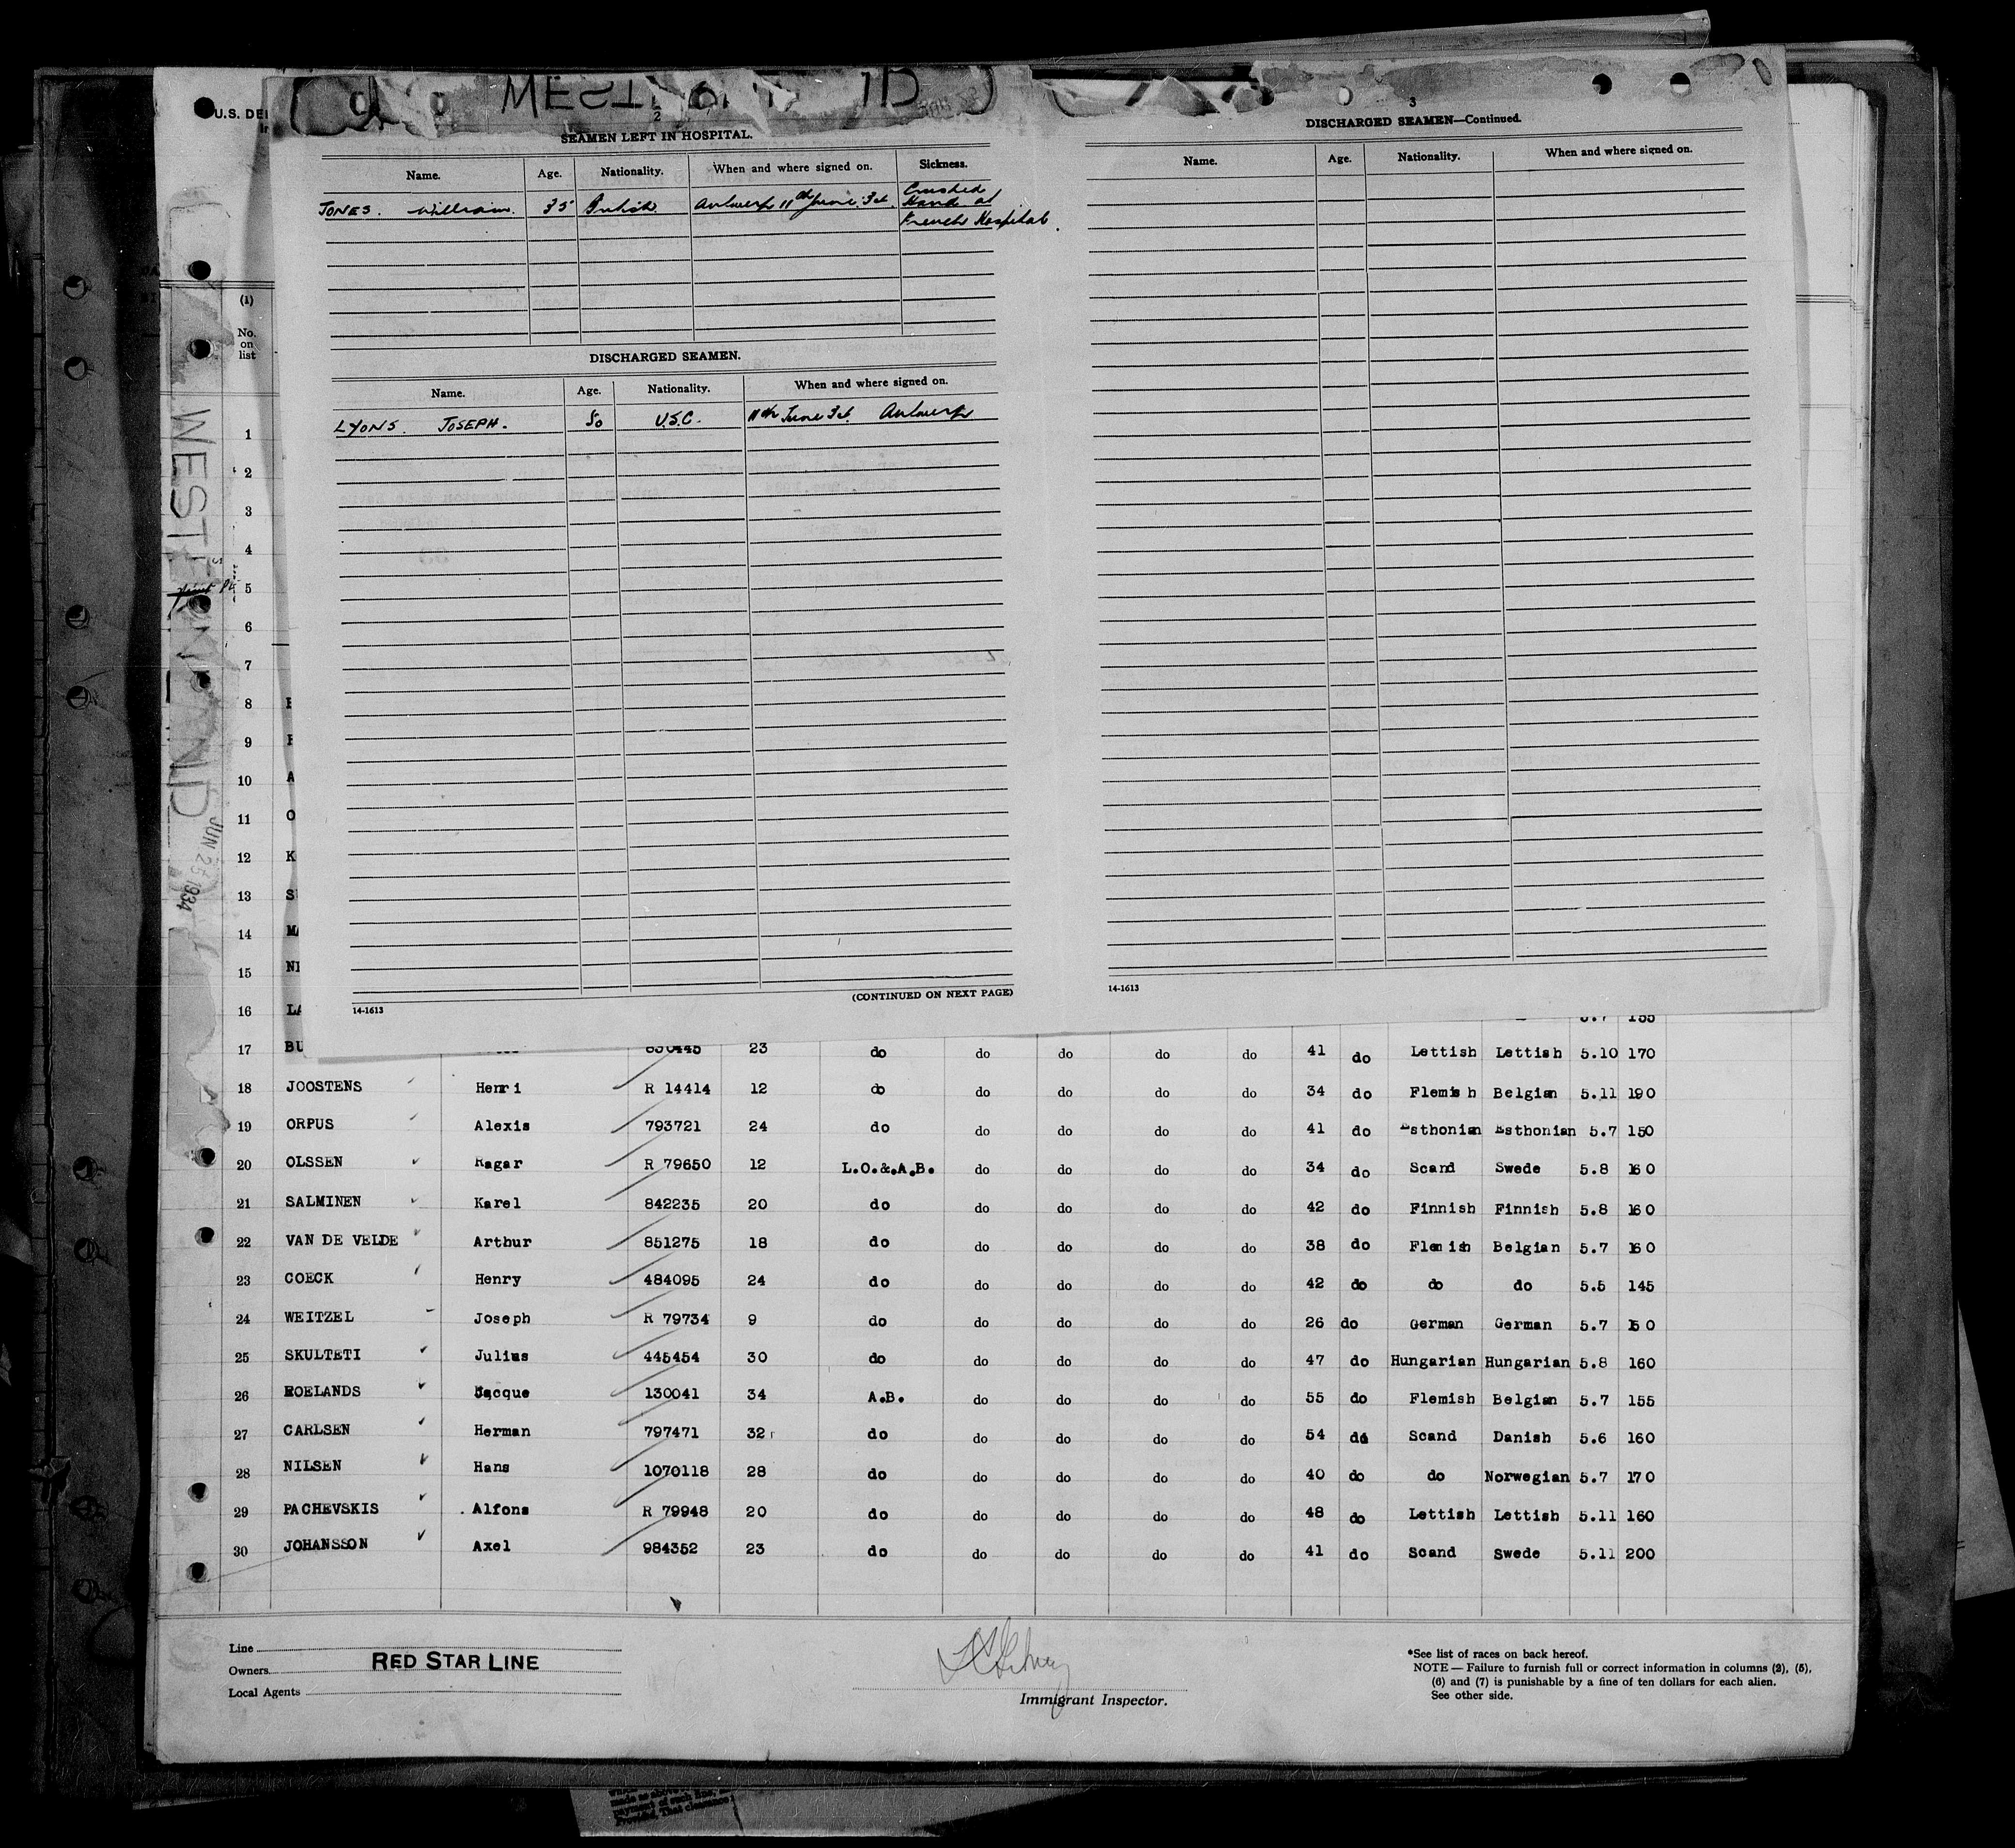 U.S. DE
WESTERNLAND
JUN 25 1934
2
SEAMEN LEFT IN HOSPITAL.
Name. Age. Nationality. When and where signed on. Sickness.
JONES. William. 35 British Antwerp 11th June. 34. Crushed Hand at French Hospital.
DISCHARGED SEAMEN.
Name. Age. Nationality. When and where signed on.
LYONS. JOSEPH. 50 U.S.C. 11th June 34. Antwerp
(CONTINUED ON NEXT PAGE)
14-1613
3
DISCHARGED SEAMEN—Continued.
Name. Age. Nationality. When and where signed on.
14-1613
(1)
No. on list
1
2
3
4
5
6
7
8
9
10 A
11 O
12 K
13 S
14 MA
15 NI
16 LA 5.7 155
17 BU 830445 23 do do do do do 41 do Lettish Lettish 5.10 170
18 JOOSTENS Henri R 14414 12 do do do do do 34 do Flemish Belgian 5.11 190
19 ORPUS Alexis 793721 24 do do do do do 41 do Esthonian Esthonian 5.7 150
20 OLSSEN Ragar R 79650 12 L.O.&.A.B. do do do do 34 do Scand Swede 5.8 160
21 SALMINEN Karel 842235 20 do do do do do 42 do Finnish Finnish 5.8 160
22 VAN DE VELDE Arthur 851275 18 do do do do do 38 do Flemish Belgian 5.7 160
23 COECK Henry 484095 24 do do do do do 42 do do do 5.5 145
24 WEITZEL Joseph R 79734 9 do do do do do 26 do German German 5.7 150
25 SKULTETI Julius 445454 30 do do do do do 47 do Hungarian Hungarian 5.8 160
26 ROELANDS Jacque 130041 34 A.B. do do do do 55 do Flemish Belgian 5.7 155
27 CARLSEN Herman 797471 32 do do do do do 54 do Scand Danish 5.6 160
28 NILSEN Hans 1070118 28 do do do do do 40 do do Norwegian 5.7 170
29 PACHEVSKIS Alfons R 79948 20 do do do do do 48 do Lettish Lettish 5.11 160
30 JOHANSSON Axel 984352 23 do do do do do 41 do Scand Swede 5.11 200
Line
Owners RED STAR LINE
Local Agents
Immigrant Inspector.
*See list of races on back hereof.
NOTE — Failure to furnish full or correct information in columns (2), (5),
(6) and (7) is punishable by a fine of ten dollars for each alien.
See other side.